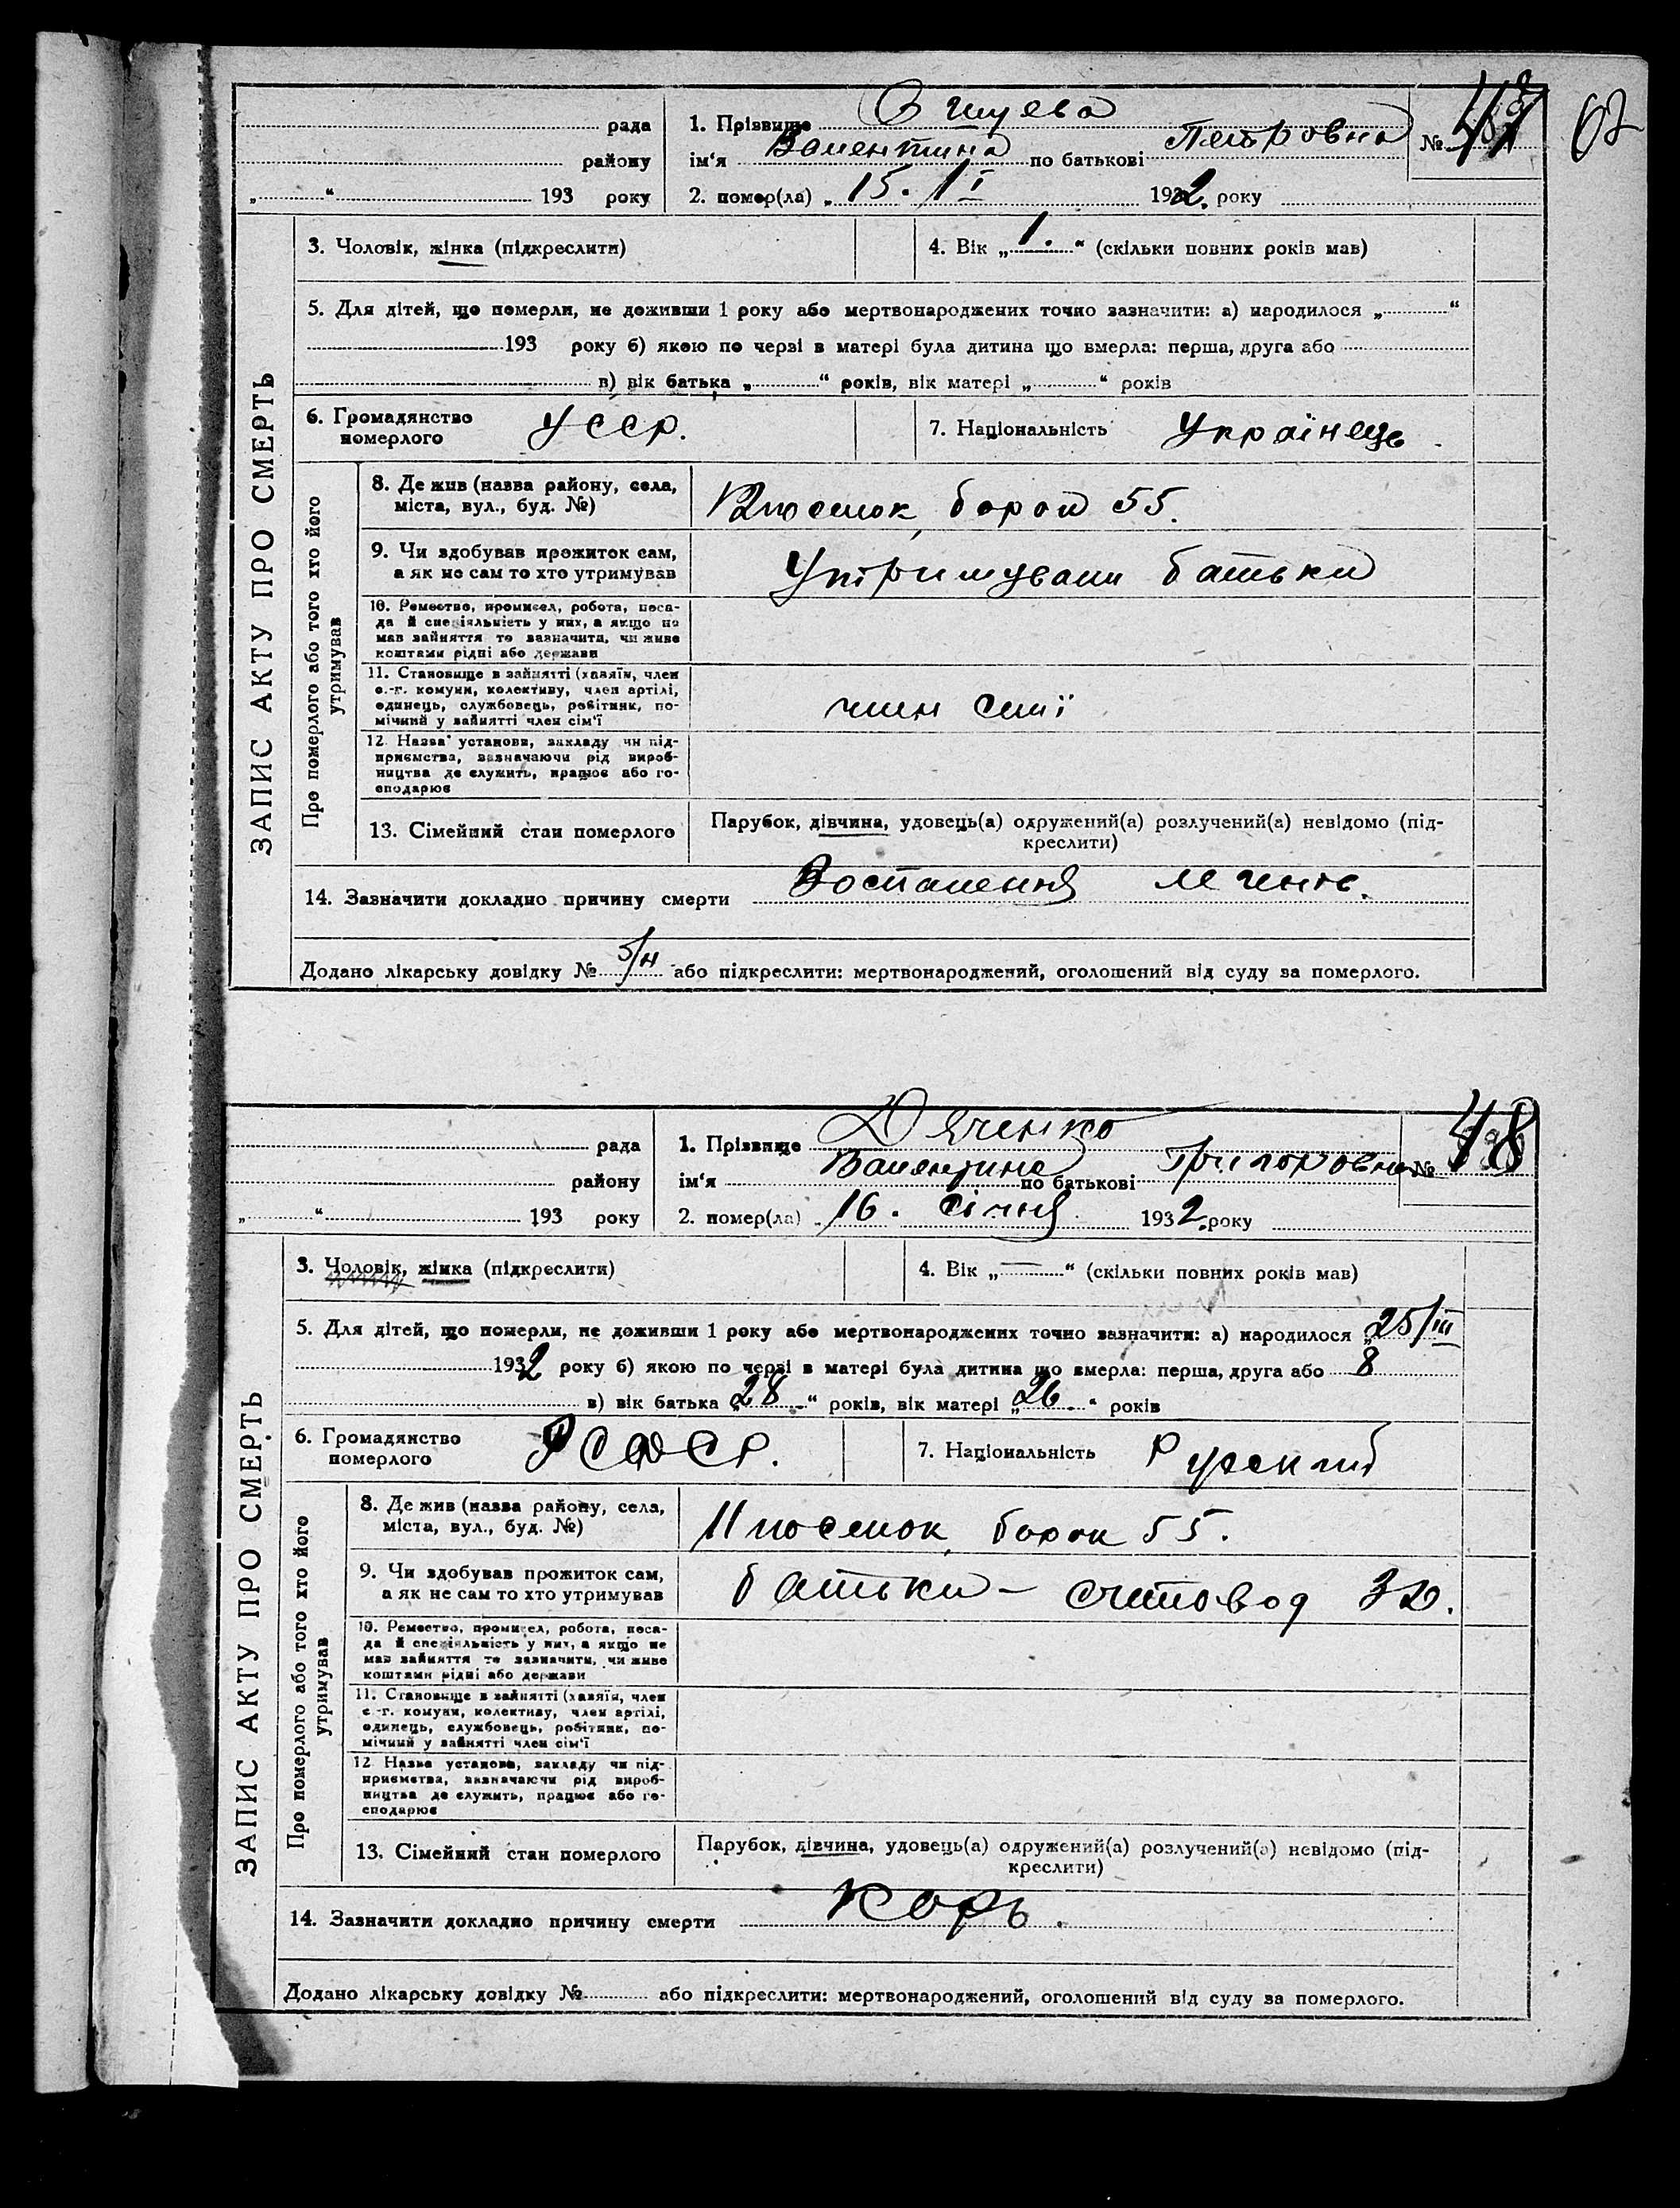 62
рада
району
„ “ 193 року
1. Прізвище
ім‘я Валентина по батькові Петровна
2. помер(ла) „ 15. 1932. року
№ 47
ЗАПИС АКТУ ПРО СМЕРТЬ
3. Чоловік, жінка (підкреслити)
4. Вік „ 1. “ (скільки повних років мав)
5. Для дітей, що померли, не доживши 1 року або мертвонароджених точно зазначити: а) народилося „ “
193 року б) якою по черзі в матері була дитина що вмерла: перша, друга або
в) вік батька „ “ років, вік матері „ “ років
6. Громадянство
померлого
УССР.
7. Національність Українець
Про померлого або того хто його
утримував
8. Де жив (назва району, села,
міста, вул., буд. №)
барак 55.
9. Чи здобував прожиток сам,
а як не сам то хто утримував
Утримували батьки
10. Ремество, промисел, робота, поса-
да й спеціяльність у них, а якщо не
мав зайняття то зазначити, чи живе
коштами рідні або держави
11. Становище в зайнятті (хазяїн, член
с.-г. комуни, колективу, член артілі,
одинець, службовець, робітник, по-
мічний у зайнятті член сім‘ї
член симї
12. Назва установи, закладу чи під-
приємства, зазначаючи рід вироб-
ництва де служить, працює або го-
сподарює
13. Сімейний стан померлого
Парубок, дівчина, удовець(а) одружений(а) розлучений(а) невідомо (під-
креслити)
14. Зазначити докладно причину смерти Воспалення легень.
Додано лікарську довідку № або підкреслити: мертвонароджений, оголошений від суду за померлого.
рада
району
„ “ 193 року
1. Прізвище Дяченко
ім‘я Валентина по батькові Григоровна
2. помер(ла) „ 16. Січня 1932. року
№ 48
ЗАПИС АКТУ ПРО СМЕРТЬ
3. Чоловік, жінка (підкреслити)
4. Вік „ — “ (скільки повних років мав)
5. Для дітей, що померли, не доживши 1 року або мертвонароджених точно зазначити: а) народилося „ 25/III
1932 року б) якою по черзі в матері була дитина що вмерла: перша, друга або 8
в) вік батька „ 28 “ років, вік матері „ 26. “ років
6. Громадянство
померлого
РСФСР.
7. Національність Руский
Про померлого або того хто його
утримував
8. Де жив (назва району, села,
міста, вул., буд. №)
барак 55.
9. Чи здобував прожиток сам,
а як не сам то хто утримував
батьки — счетовод
10. Ремество, промисел, робота, поса-
да й спеціяльність у них, а якщо не
мав зайняття то зазначити, чи живе
коштами рідні або держави
11. Становище в зайнятті (хазяїн, член
с.-г. комуни, колективу, член артілі,
одинець, службовець, робітник, по-
мічний у зайнятті член сім‘ї
12. Назва установи, закладу чи під-
приємства, зазначаючи рід вироб-
ництва де служить, працює або го-
сподарює
13. Сімейний стан померлого
Парубок, дівчина, удовець(а) одружений(а) розлучений(а) невідомо (під-
креслити)
14. Зазначити докладно причину смерти Корь.
Додано лікарську довідку № або підкреслити: мертвонароджений, оголошений від суду за померлого.